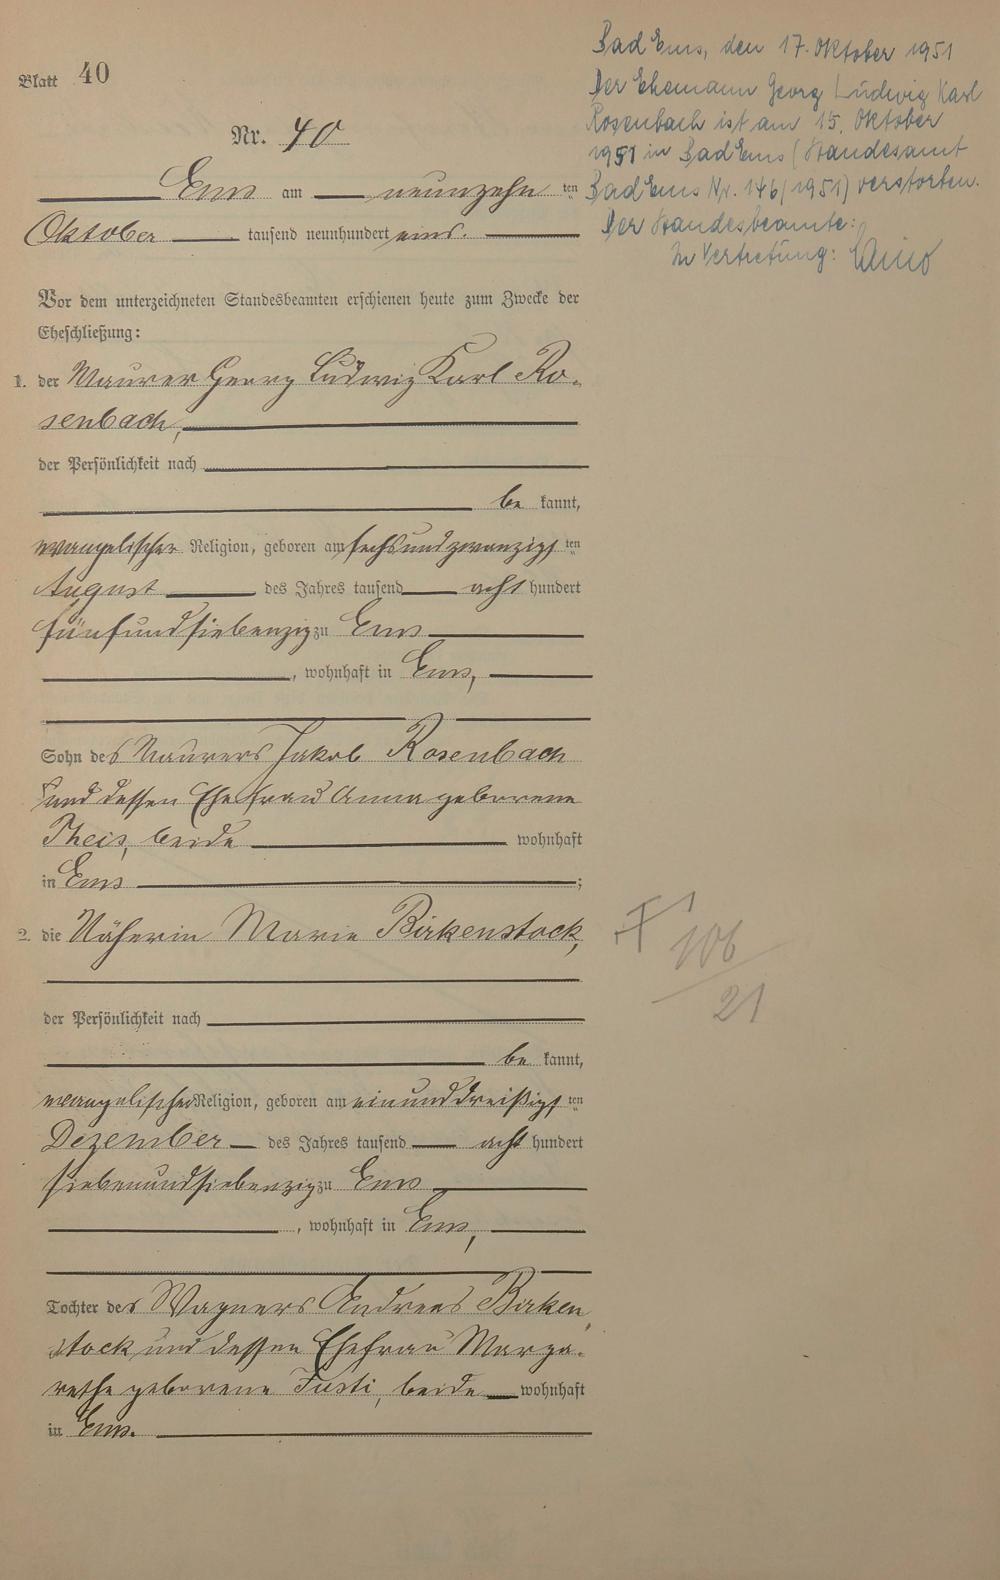 Blatt 40
Nr. 40
Ems am neunzehnten
Oktober tausend neunhundert eins.
Vor dem unterzeichneten Standesbeamten erschienen heute zum Zwecke der
Eheschließung:
1. der Maurer Georg Ludwig Karl Ro-
senbach,
der Persönlichkeit nach
be kannt,
evangelischer Religion, geboren am sechsundzwanzigsten
August des Jahres tausend acht hundert
fünfundsiebenzig zu Ems
, wohnhaft in Ems,
Sohn des Maurers Jakob Rosenbach
und dessen Ehefrau Anna geborene
Theis, beide wohnhaft
in Ems ;
2. die Näherin Marie Birkenstock,
der Persönlichkeit nach
be kannt,
evangelischer Religion, geboren am einunddreißigsten
Dezember des Jahres tausend acht hundert
siebenundsiebenzig zu Ems
, wohnhaft in Ems,
Tochter des Wagners Andreas Birken
stock und dessen Ehefrau Marga-
rethe geborene Justi, beide wohnhaft
in Ems.
Bad Ems, den 17. Oktober 1951
Der Ehemann Georg Ludwig Karl
Rosenbach ist am 15. Oktober
1951 in Bad Ems (Standesamt
Bad Ems Nr. 146/1951) verstorben.
Der Standesbeamte:
In Vertretung:
106
21